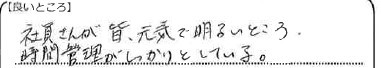 【良いところ】
社員さんが皆、元気で明るいところ.
時間管理がしっかりとしている。